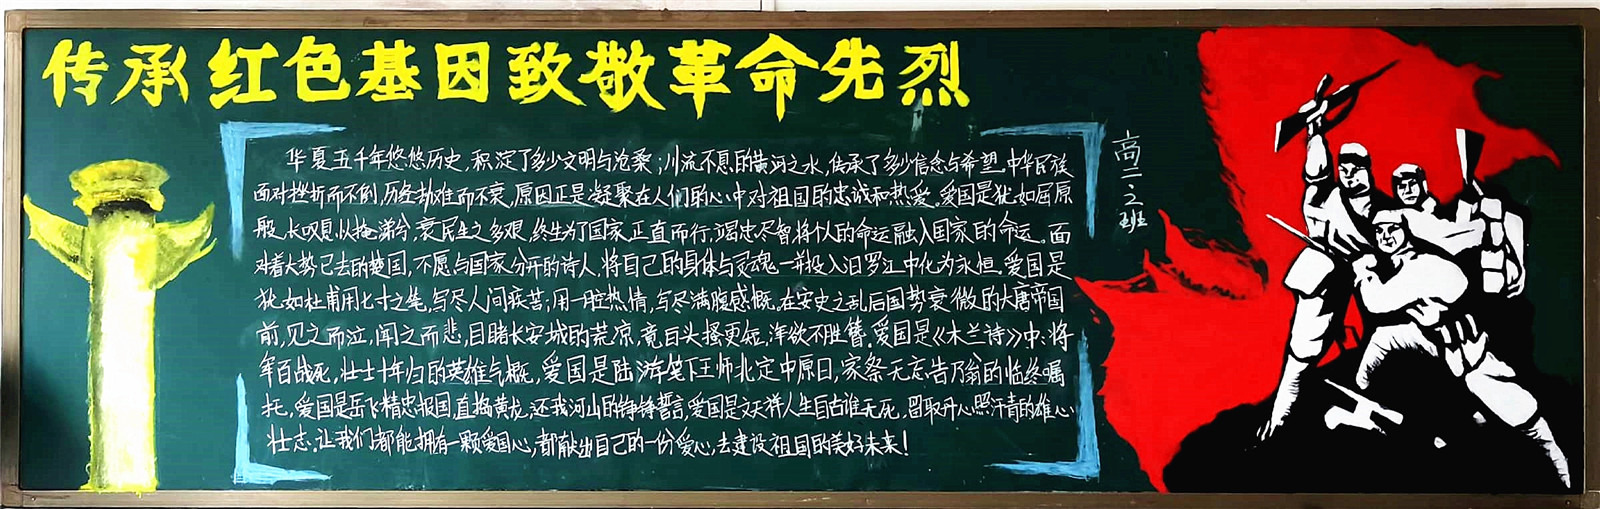 传承红色基因致敬革命先烈
华夏五千年悠悠历史,积淀了多少文明与沧桑;川流不息的黄河之水,传承了多少信念与希望。中华民族
面对挫折而不倒,历经劫难而不衰,原因正是凝聚在人们的心中对祖国的忠诚和热爱。爱国是犹如屈原
般,长叹息以掩涕兮,哀民生之多艰,终生为了国家正直而行,竭忠尽智将个人的命运融入国家的命运。面
对着大势已去的楚国,不愿与国家分开的诗人,将自己的身体与灵魂一并投入汨罗江中化为永恒。爱国是
犹如杜甫用七寸之笔,写尽人间疾苦;用一腔热情,写尽满腹感慨。在安史之乱后国势衰微的大唐帝国
前,见之而泣,闻之而悲,目睹长安城的荒凉,竟白头搔更短,浑欲不胜簪。爱国是《木兰诗》中:将
军百战死,壮士十年归的英雄气概,爱国是陆游笔下王师北定中原日,家祭无忘告乃翁的临终嘱
托,爱国是岳飞精忠报国,直捣黄龙,还我河山的铮铮誓言,爱国是文天祥人生自古谁无死,留取丹心照汗青的雄心
壮志。让我们都能拥有一颗爱国心,都献出自己的一份爱心,去建设祖国的美好未来!
高二之班